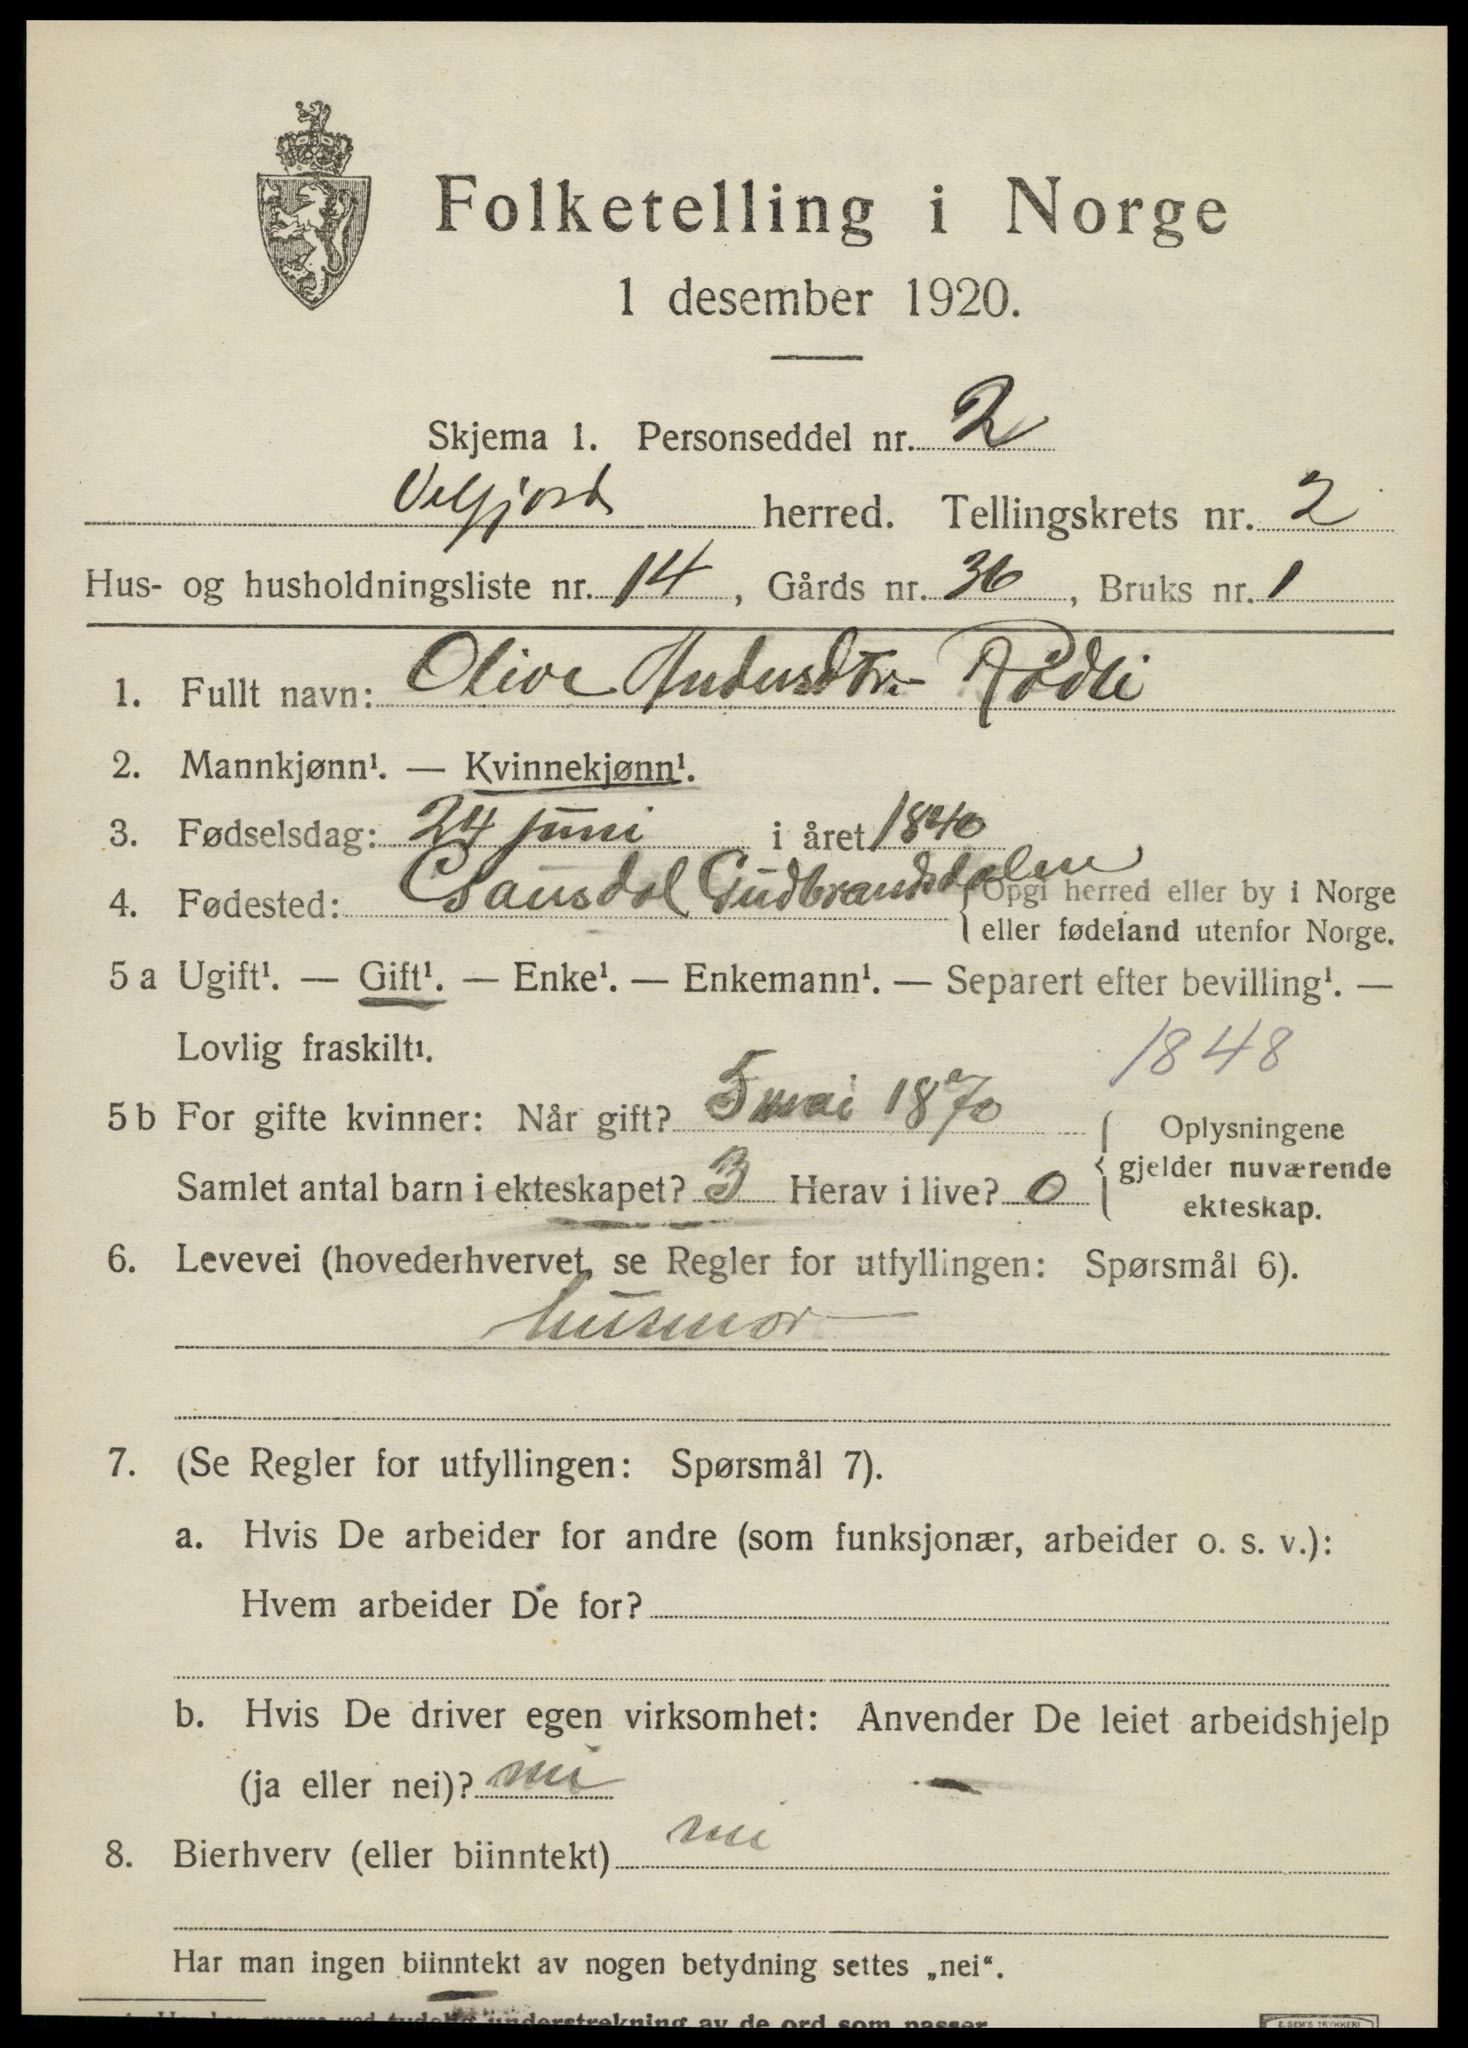 Folketelling i Norge
1 desember 1920.
Skjema 1. Personseddel nr. 2
Velfjord herred. Tellingskrets nr. 2
Hus- og husholdningsliste nr. 14, Gårds nr. 36, Bruks nr. 1
1. Fullt navn: Olive Andersdtr. Rødli
2. Mannkjønn¹. — Kvinnekjønn¹.
3. Fødselsdag: 24 juni i året 1840
4. Fødested: Gausdal Gudbrandsdalen {Opgi herred eller by i Norge
eller fødeland utenfor Norge.
5 a Ugift¹. — Gift¹. — Enke¹. — Enkemann¹. — Separert efter bevilling¹. —
Lovlig fraskilt¹.
1848
5 b For gifte kvinner: Når gift? 5 mai 1870
Samlet antal barn i ekteskapet? 3 Herav i live? 0
{Oplysningene
gjelder nuværende
ekteskap.
6. Levevei (hovederhvervet, se Regler for utfyllingen: Spørsmål 6).
husmor
7. (Se Regler for utfyllingen: Spørsmål 7).
a. Hvis De arbeider for andre (som funksjonær, arbeider o. s. v.):
Hvem arbeider De for?
b. Hvis De driver egen virksomhet: Anvender De leiet arbeidshjelp
(ja eller nei)? nei
8. Bierhverv (eller biinntekt) nei
Har man ingen biinntekt av nogen betydning settes „nei“.
understrekning av de ord som passer
E. SEM'S TRYKKERI